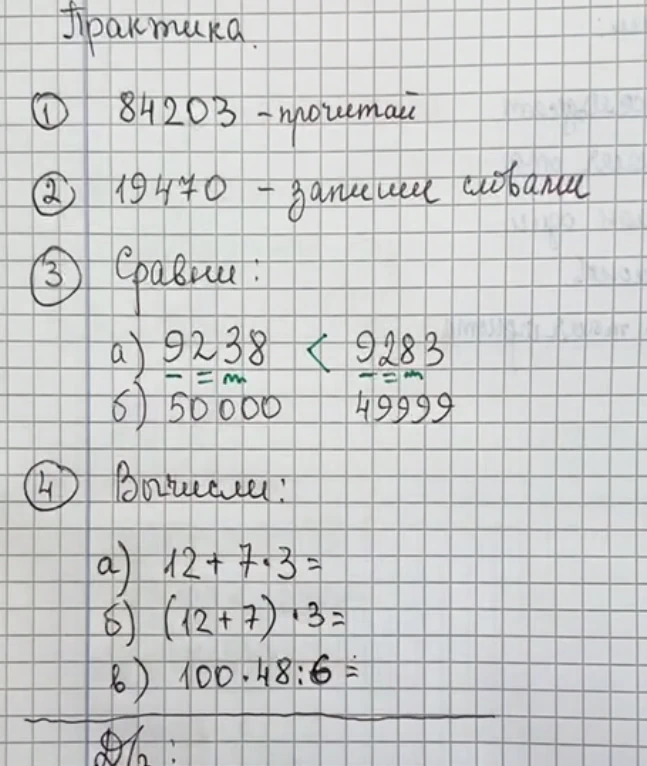 Практика.
① 84203 - прочитай
② 19470 - запиши словами
③ Сравни:
а) 9238 < 9283
б) 50000 49999
④ Вычисли:
а) 12 + 7 · 3 =
б) (12 + 7) · 3 =
в) 100 · 48 : 6 =
Д/з :